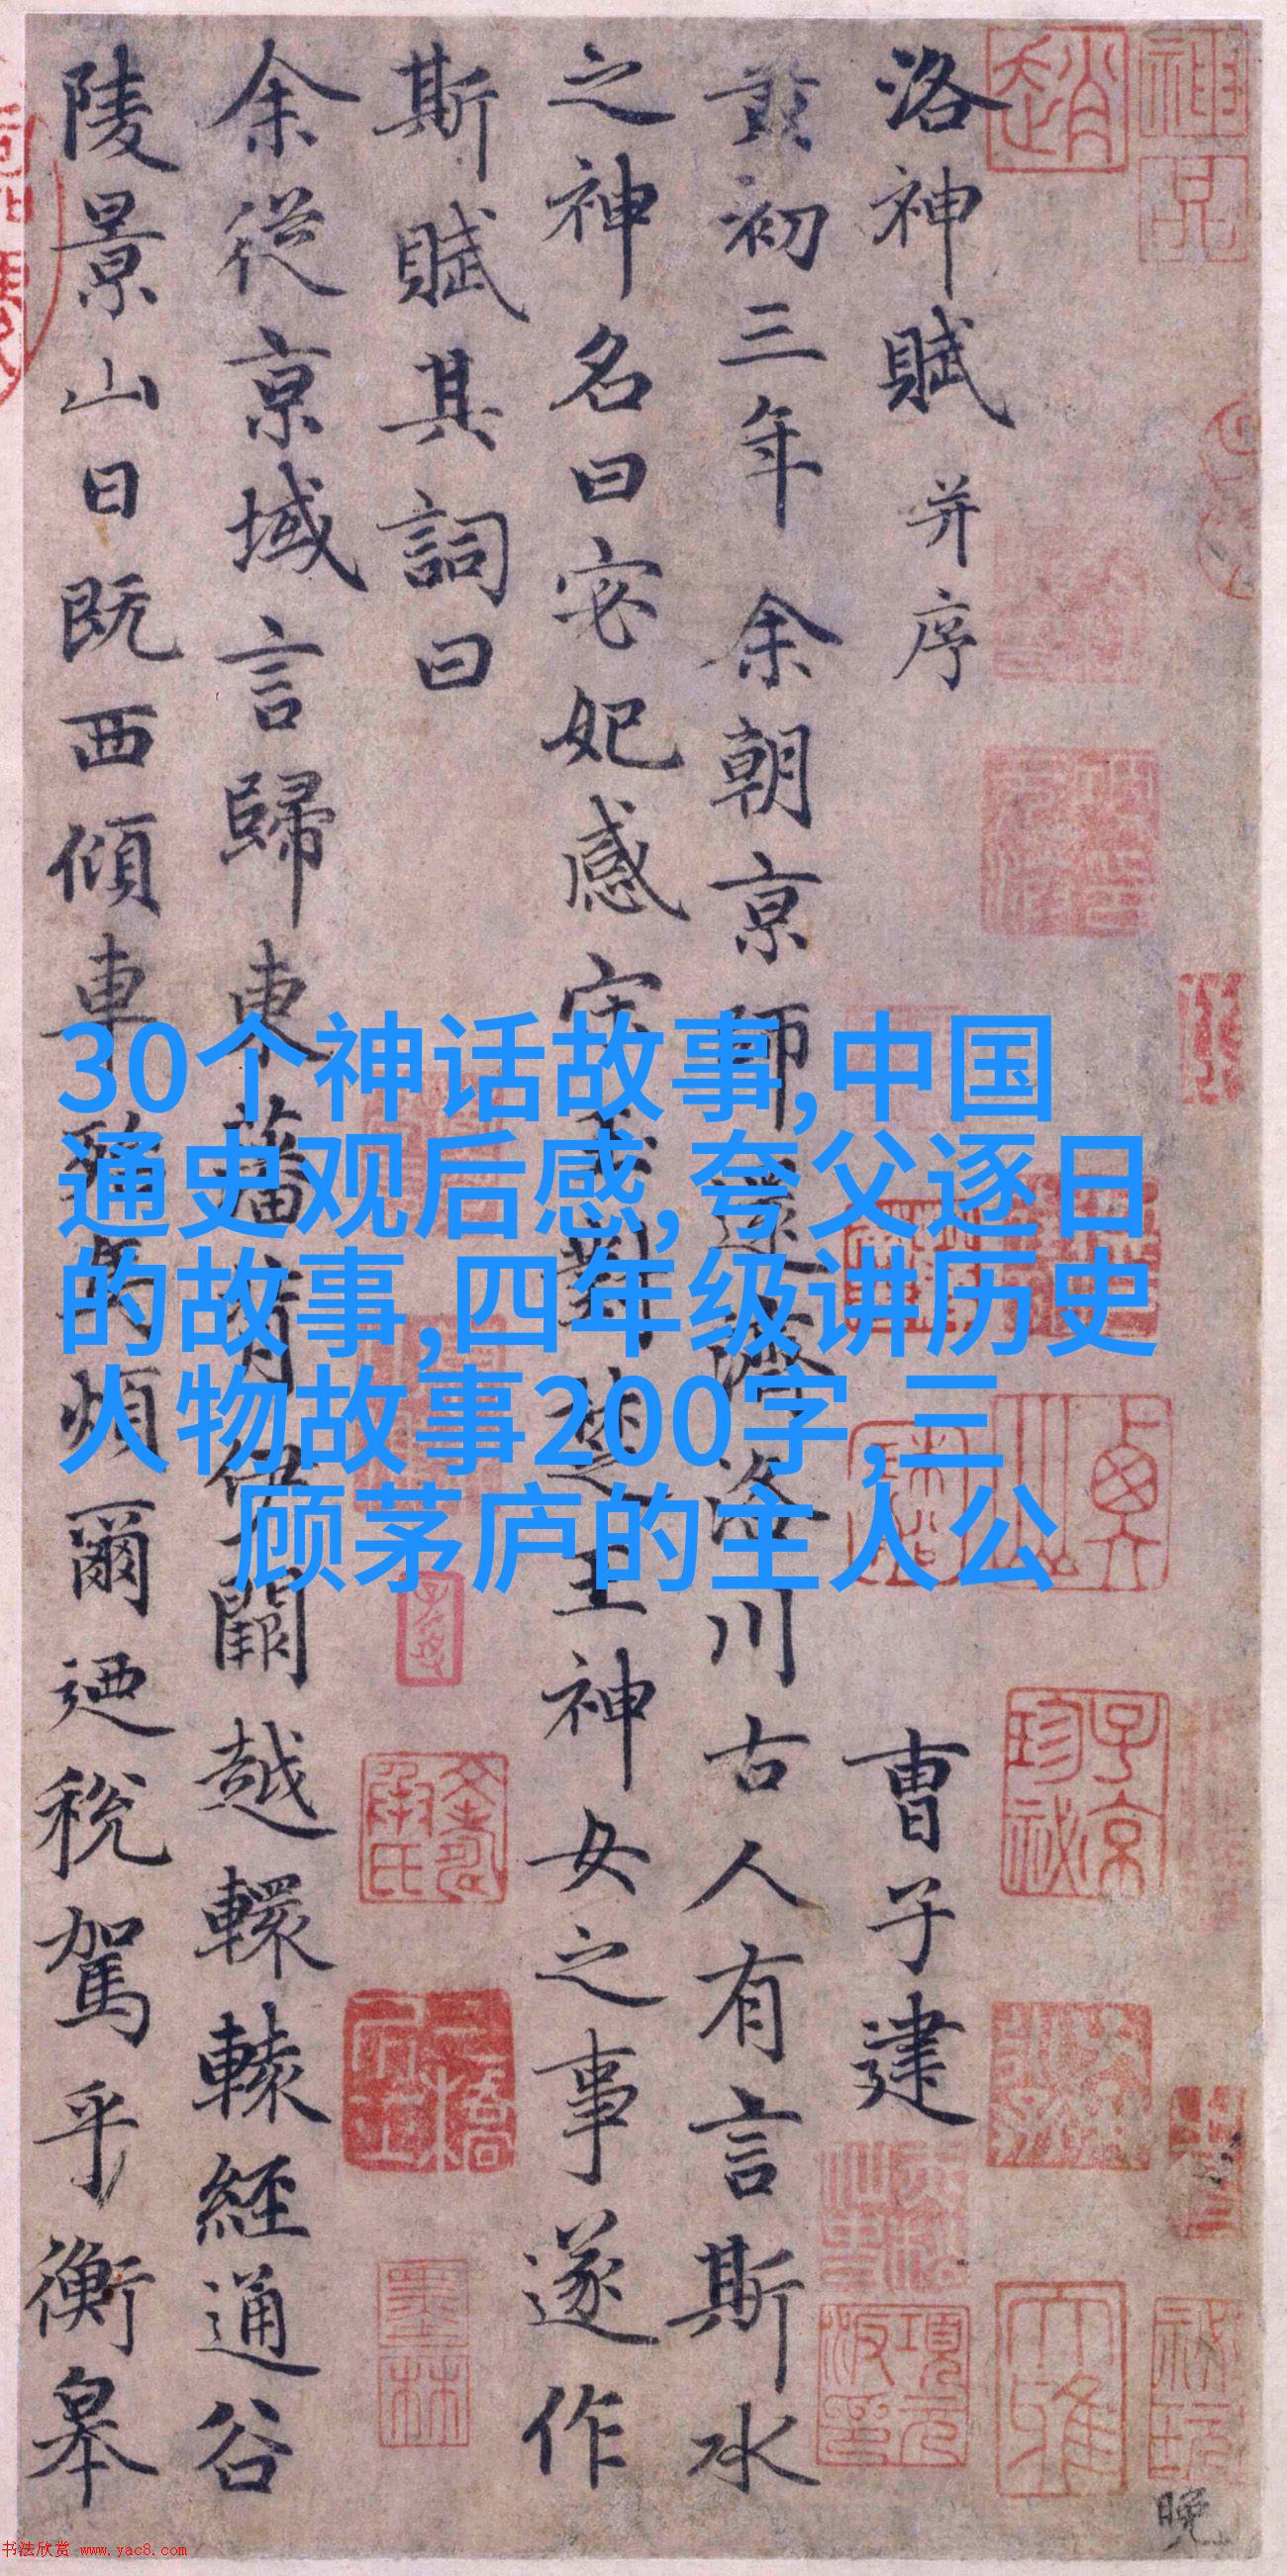 洛神賦 并序 曹子建
黃初三年余朝京師還濟洛川古人有言斯水
之神名曰宓妃感宋玉對楚王神女之事遂作
斯賦其詞曰
余從京域言歸東藩背伊闕越轘轅經通谷
陵景山日既西傾車殆馬煩爾迺稅駕乎衡皋
30个神话故事,中国
通史观后感,夸父逐日
的故事,四年级讲历史
人物故事200字,三
顾茅庐的主人公
趙
神品
子京珍祕
項元汴印
墨林
晚
书法欣赏 www.yac8.com